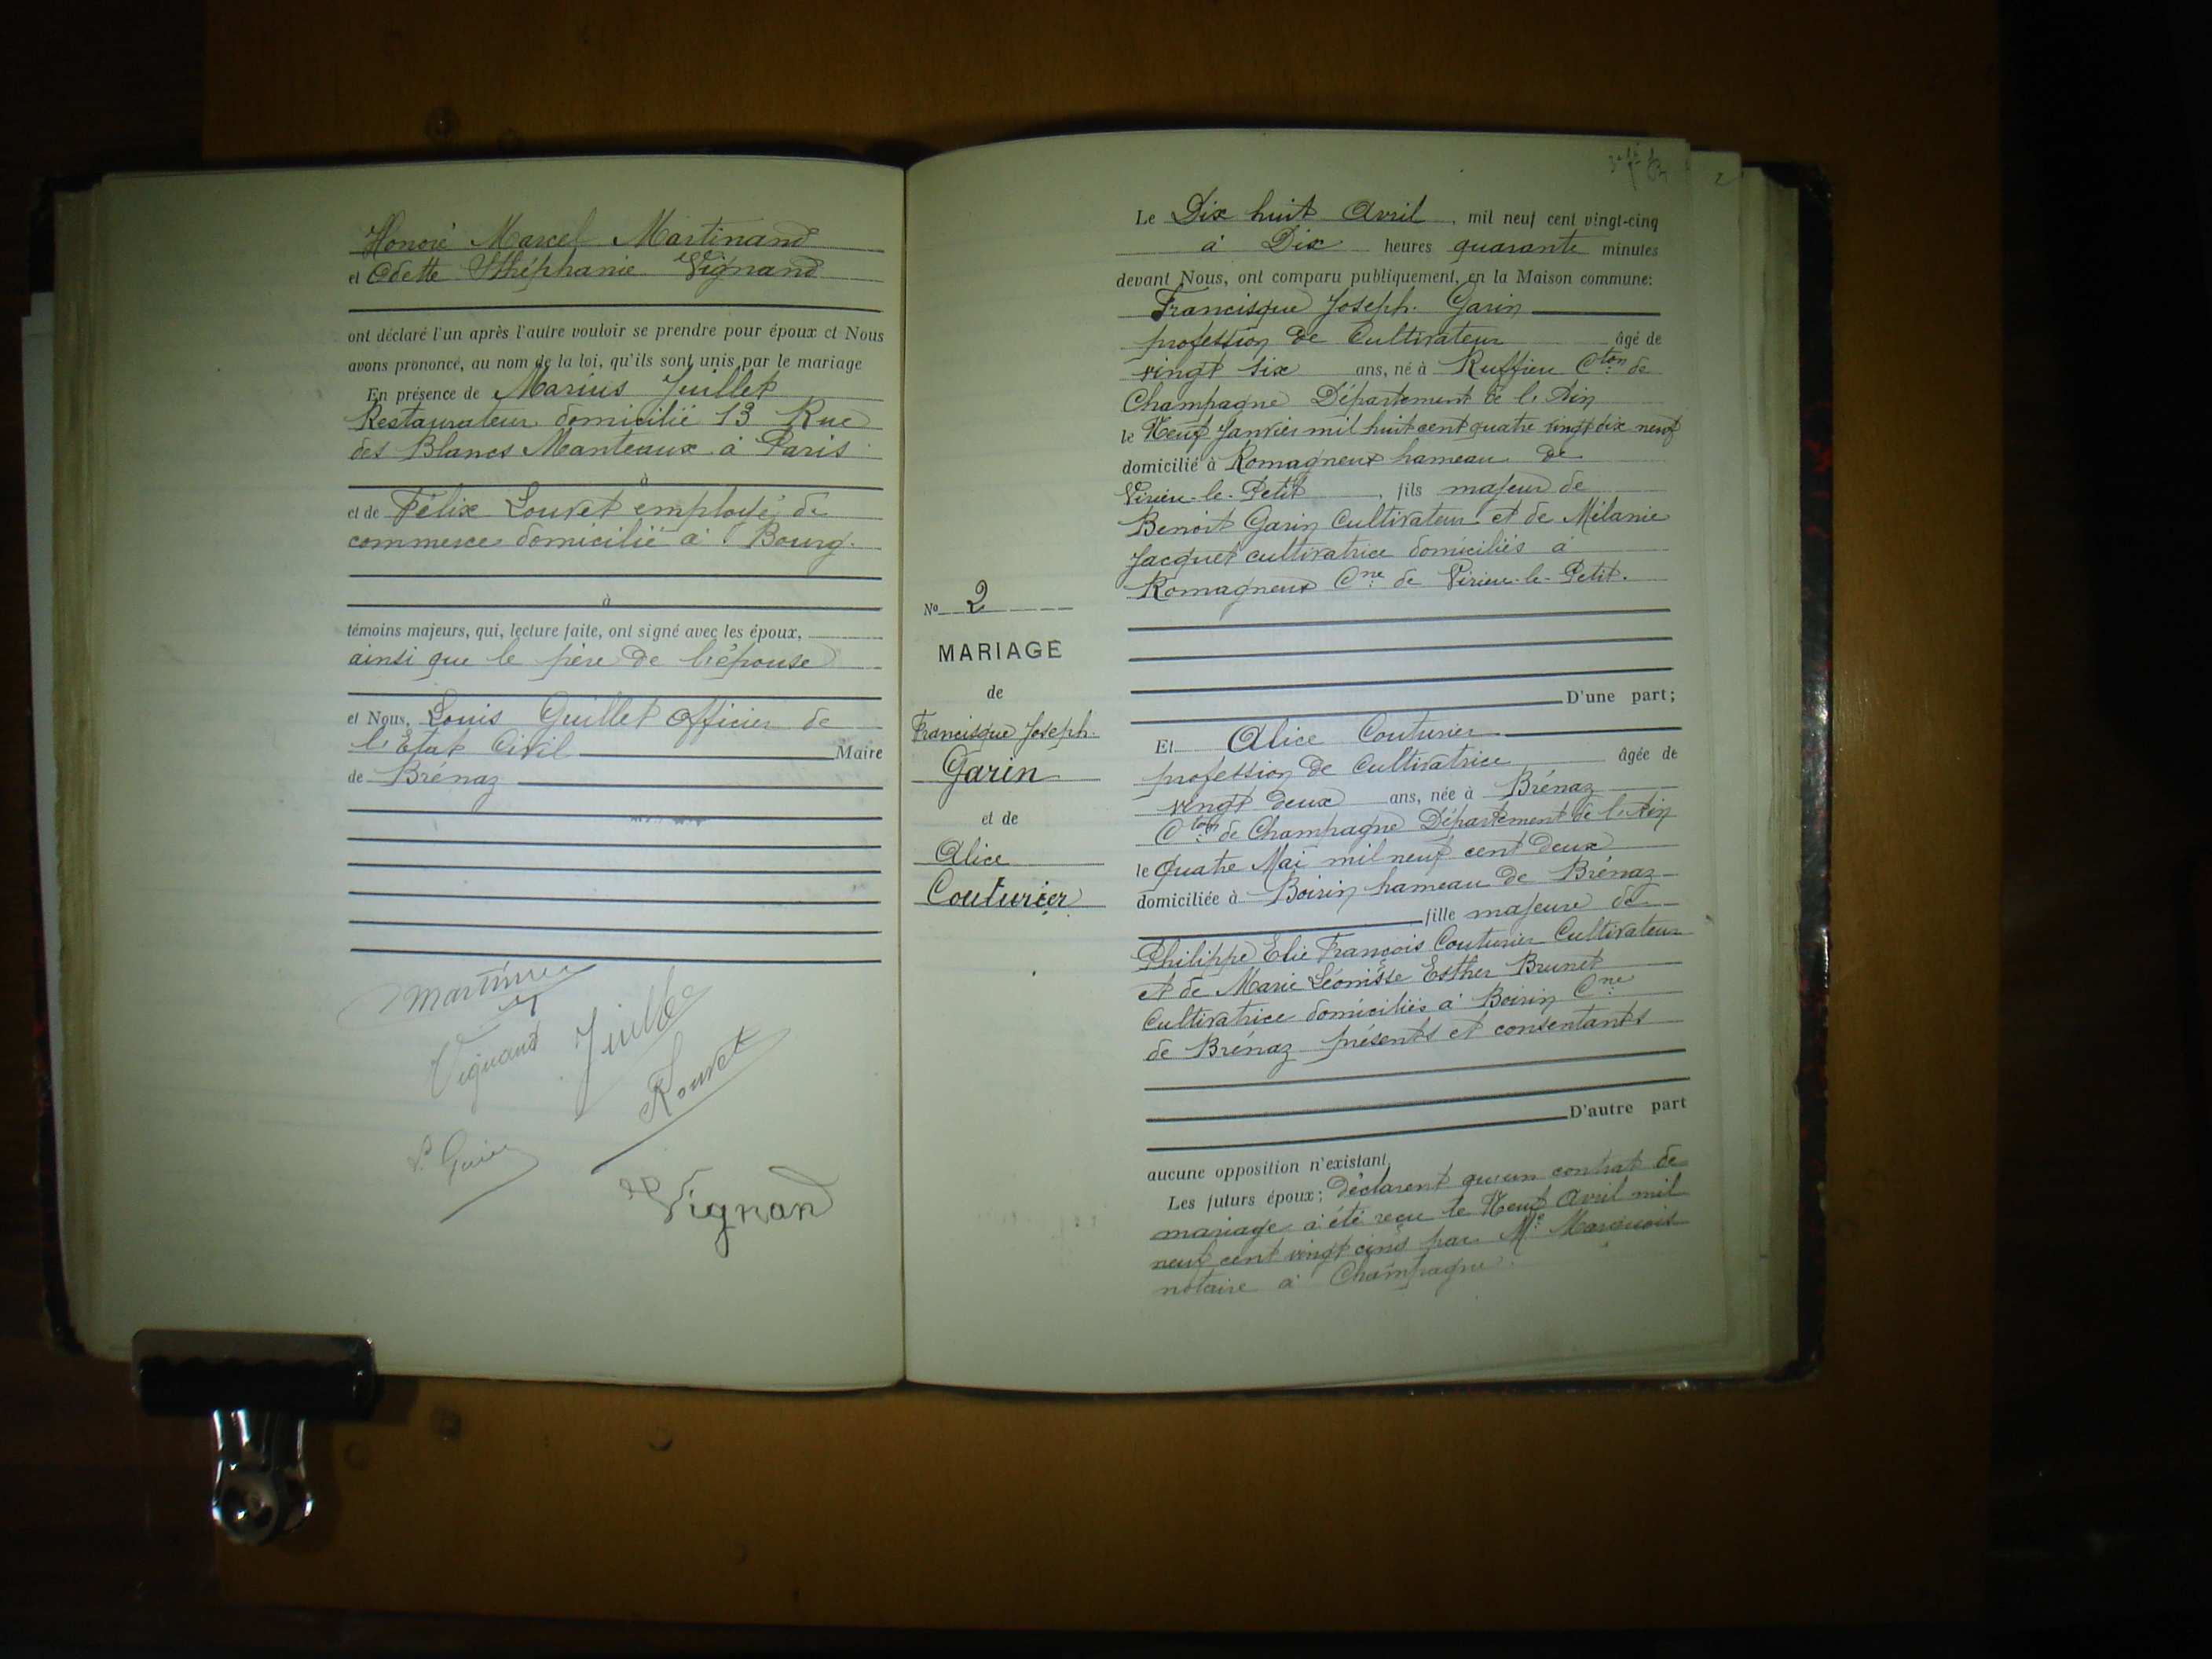 Honoré Marcel Martinand
et Odette Sthéphanie Vignand
ont déclaré l'un après l'autre vouloir se prendre pour époux et Nous
avons prononcé, au nom de la loi, qu'ils sont unis par le mariage
En présence de Marius Juillet
Restaurateur domicilié 13 Rue
des Blancs Manteaux à Paris
à
et de Félix Louvet employé de
commerce domicilié à Bourg.
à
témoins majeurs, qui, lecture faite, ont signé avec les époux,
ainsi que le père de l'épouse
et Nous, Louis Guillet officier de
l'Etat Civil Maire
de Brénaz
Vignand
Louvet
Vignand
2
Le Dix huit Avril mil neuf cent vingt-cinq
à Dix heures quarante minutes
devant Nous, ont comparu publiquement, en la Maison commune:
Francisque Joseph. Garin
profession de Cultivateur âgé de
vingt six ans, né à Ruffieu Cton de
Champagne Département de l'Ain
le Neuf Janvier mil huit cent quatre vingt dix neuf
domicilié à Romagneux hameau de
Virieu-le-Petit, fils majeur de
Benoit Garin Cultivateur et de Mélanie
Jacquet cultivatrice domiciliés à
Romagneux Cne de Virieu-le-Petit.
No 2
MARIAGE
de
Francisque Joseph.
Garin
et de
Alice
Couturier
D'une part;
Et Alice Couturier
profession de Cultivatrice âgée de
vingt deux ans, née à Brénaz
Cton de Champagne Département de l'Ain
le Quatre Mai mil neuf cent deux
domiciliée à Boirin hameau de Brénaz
fille majeure de
Philippe Elie François Couturier Cultivateur
et de Marie Léonisse Esther Brunet
Cultivatrice domiciliés à Boirin Cne
de Brénaz présents et consentants
D'autre part
aucune opposition n'existant
Les futurs époux; déclarent qu'un contrat de
mariage a été reçu le Neuf Avril mil
neuf cent vingt cinq par Me
notaire à Champagne.